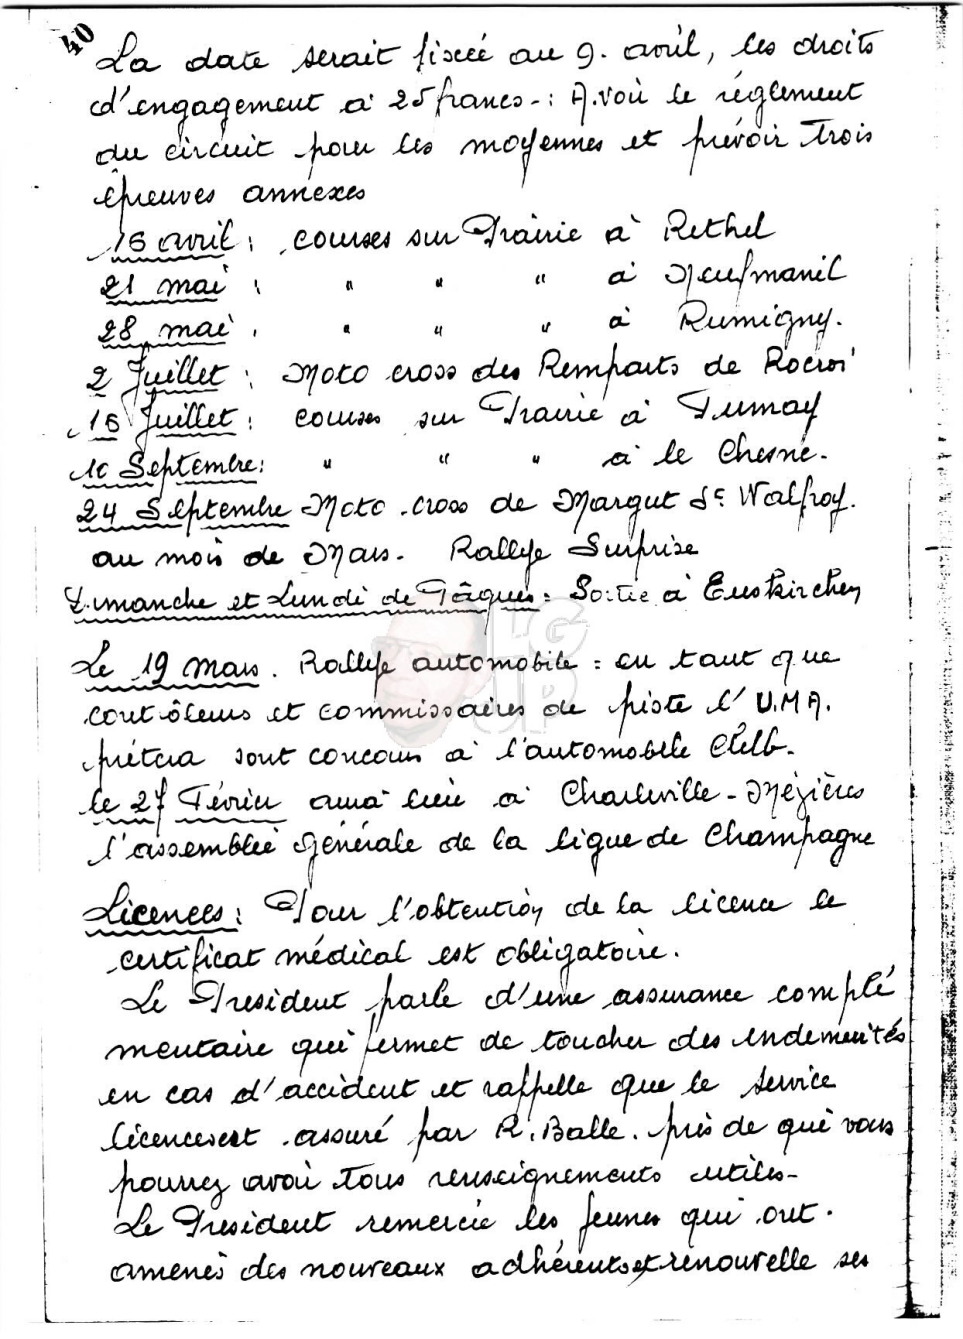 40
La date serait fixée au 9. avril, les droits
d'engagement à 25 francs -: A. voir le réglement
du circuit pour les moyennes et prévoir trois
épreuves annexes
16 avril : courses sur Prairie à Rethel
21 mai : " " " à Neufmanil
28 mai . " " " à Rumigny.
2 Juillet : Moto cross des Remparts de Rocroi
16 Juillet : courses sur Prairie à Fumay
10 Septembre : " " " à le Chesne.
24 Septembre Moto .cross de Margut St Walfroy.
au mois de Mars. Rallye Surprise
Dimanche et Lundi de Pâques : Sortie à Euskirchen
LG UP
Le 19 mars . Rallye automobile : en tant que
contrôleurs et commissaires de piste l'U.M.A.
prétera sont concours à l'automobile Club.
le 27 Février aura lieu à Charleville - Mézières
l'assemblée générale de la ligue de Champagne
Licences : Pour l'obtention de la licence le
certificat médical est obligatoire.
Le President parle d'une assurance complé
mentaire qui permet de toucher des indemnités
en cas d'accident et rappelle que le service
licences est assuré par R. Balle. près de qui vous
pourrez avoir tous renseignements utiles-
Le President remercie les jeunes qui ont.
amenés des nouveaux adhérents et renouvelle ses